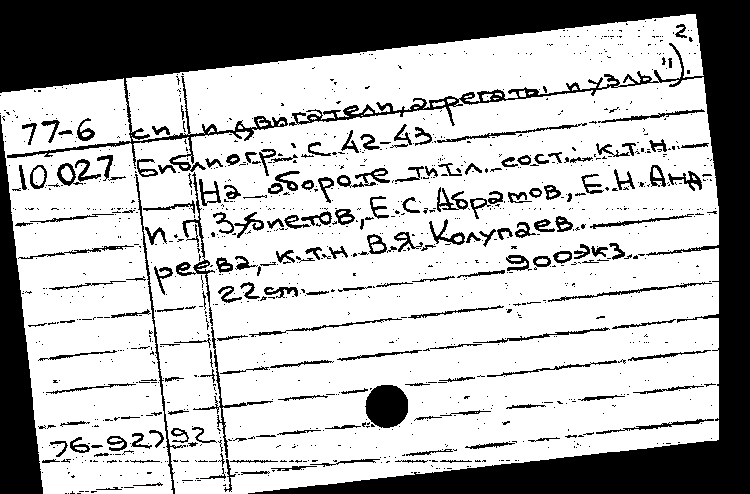 2.
77-6 сы и двигатели, агрегаты и узлы").
10 027 Библиогр.: с. 42-43
На обороте тит.л. сост.: к.т.н.
И.П. Зубиетов, Е.С. Абрамов, Е.Н. Анд-
реева, к.т.н. В.Я. Колупаев.
22 cm. 900экз.
76-92792